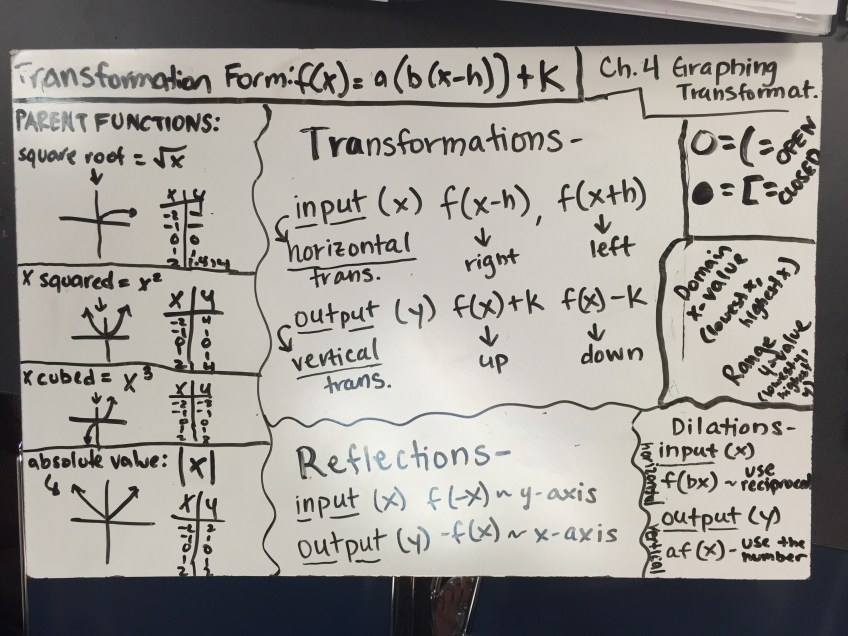 Transformation Form: f(x) = a(b(x-h)) + K
Ch. 4 Graphing
Transformat.
PARENT FUNCTIONS:
square root = √x
x y
-2 –
-1 –
0 0
1 1
2
x squared = x²
x y
-2 4
-1 1
0 0
1 1
2 4
x cubed = x³
x y
-2 -8
-1 -1
0 0
1 1
2
absolute value: |x|
x y
-2 2
-1 1
0 0
1 1
2 2
Transformations-
input (x) f(x-h), f(x+h)
horizontal
trans.
right
left
output (y) f(x)+K f(x)-K
vertical
trans.
up
down
Reflections-
input (x) f(-x) ~ y-axis
output (y) -f(x) ~ x-axis
O = ( = OPEN
● = [ = CLOSED
Domain
x-value
(lowest x,
highest x)
Range
y-value
(lowest y,
highest y)
Dilations-
input (x)
horizontal
f(bx) ~ use
reciprocal
output (y)
vertical
af(x) - use the
number